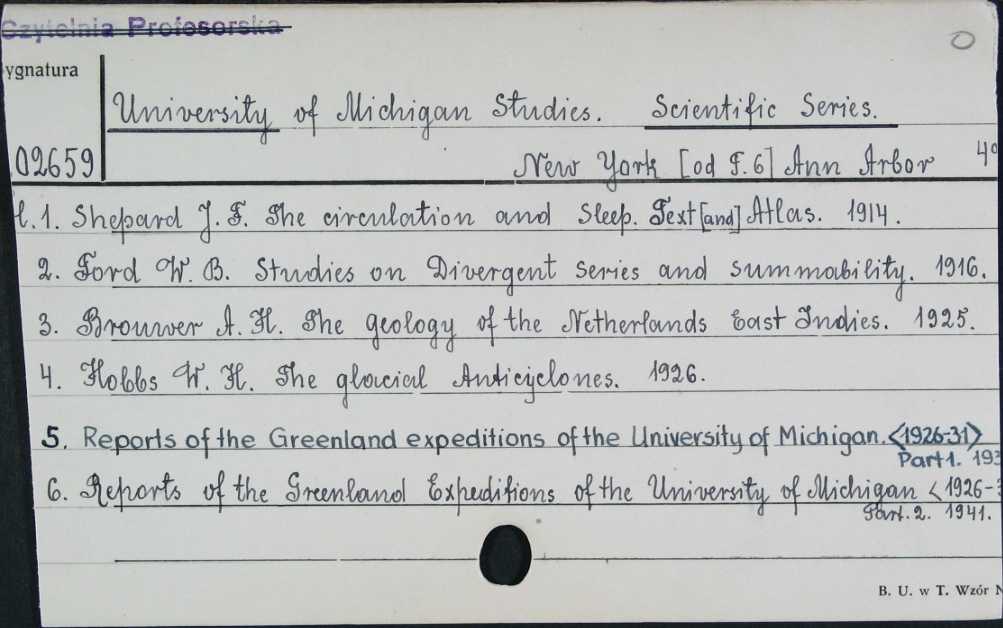 Czytelnia Profesorska
ygnatura
O
University of Michigan Studies. Scientific Series.
02659
New York [od T. 6] Ann Arbor 4°
t. 1. Shepard J. F. The circulation and Sleep. Text [and] Atlas. 1914.
2. Ford W. B. Studies on Divergent series and summability. 1916.
3. Brouwer A. H. The geology of the Netherlands East Indies. 1925.
4. Hobbs W. H. The glacial Anticyclones. 1926.
5. Reports of the Greenland expeditions of the University of Michigan. <1926-31>
Part 1. 193
6. Reports of the Greenland Expeditions of the University of Michigan <1926-3
Part. 2. 1941.
B. U. w T. Wzór N